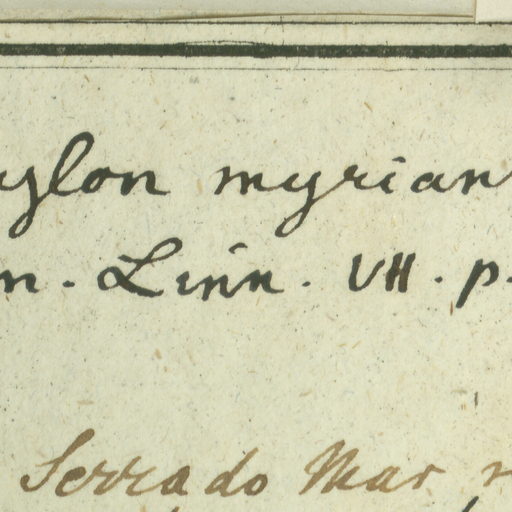 ylon myrian
n. Linn. VII. p.
Serra do Mar r